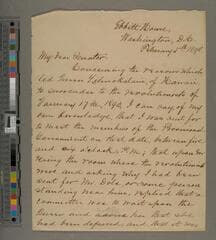 Ebbitt House,
Washington, D.C.
February 5th 1898
My dear Senator
Concerning the reasons which
led Queen Liliuokalani of Hawaii
to surrender to the revolutionists of
January 17th 1893, I can say of my
own knowledge, that I was sent for
to meet the members of the Provisional
Government on that date, between five
and six o'clock P.M.; that upon en-
tering the room where the revolutionists
were and asking why I had been
sent for Mr Dole or some person
standing near him, replied that a
committee was to wait upon the
Queen and advise her that she
had been deposed and that it was